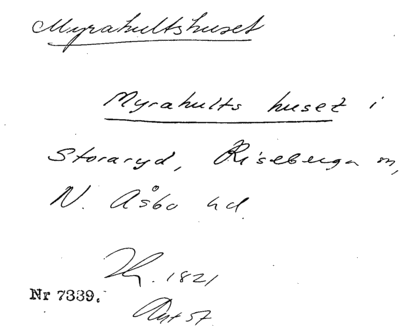 Myrahultshuset
Myrahults huset i
Storaryd, Riseberga sn,
N. Åsbo hd.
Hfl. 1821
Nr 7339.
Avt 57